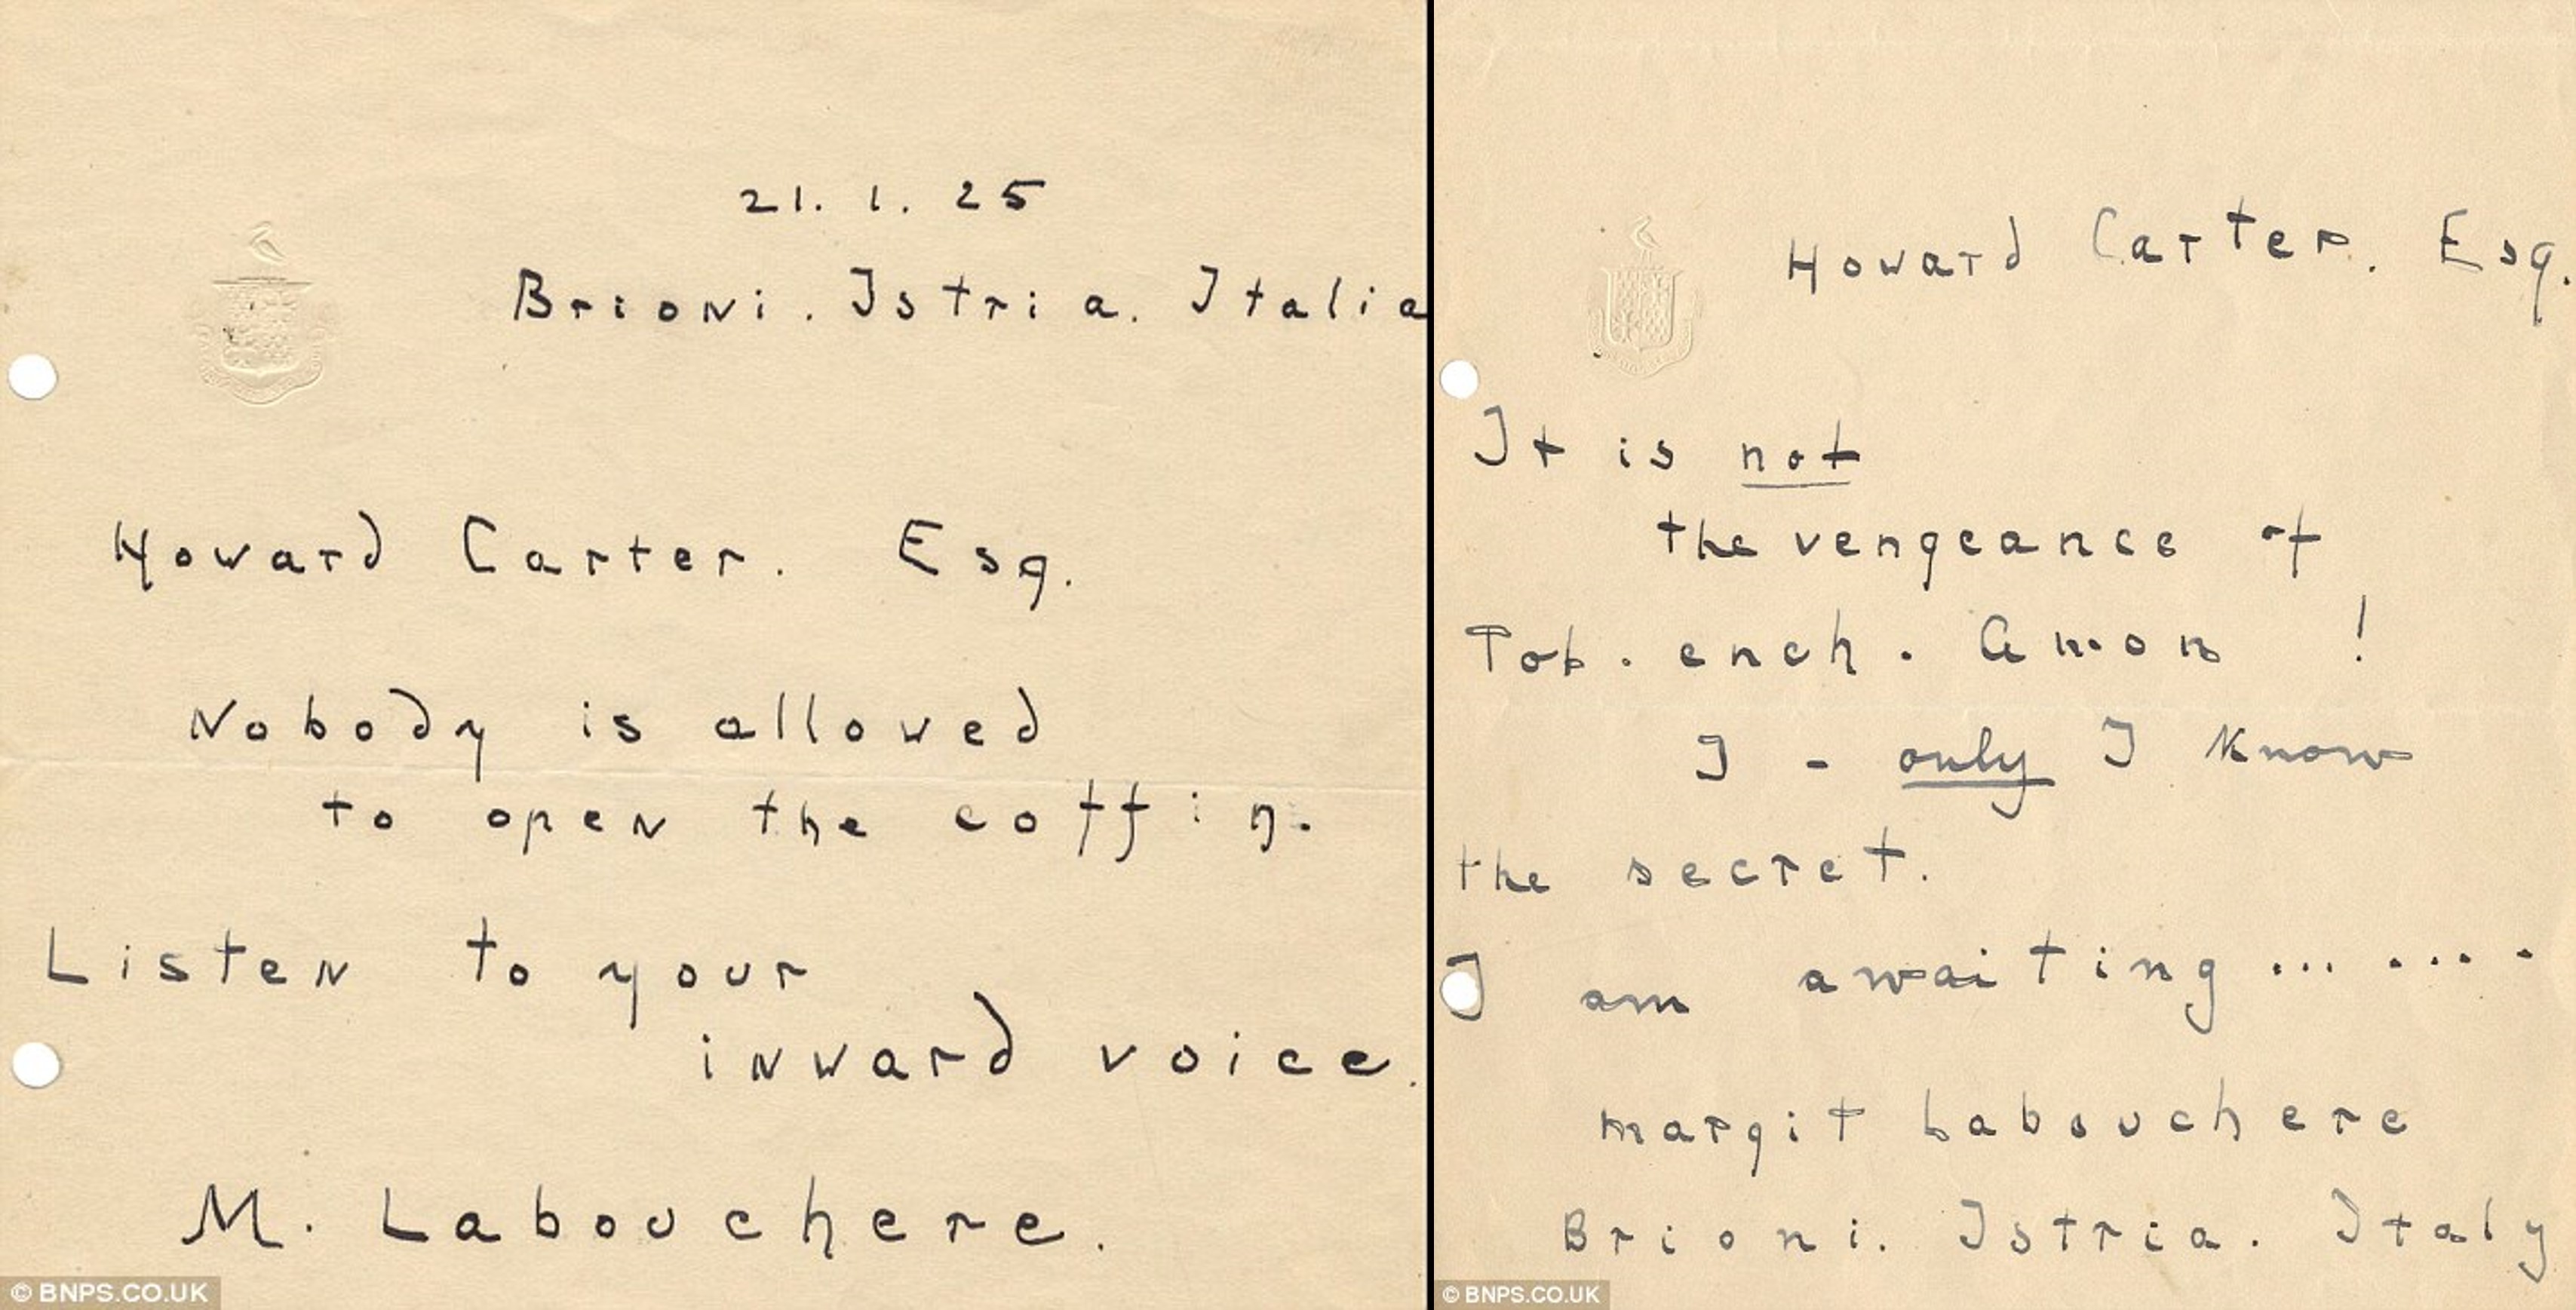 21. 1. 25
Brioni. Istria. Italia
Howard Carter. Esq.
Nobody is allowed
to open the coffin.
Listen to your
inward voice.
M. Labouchere.
© BNPS.CO.UK
Howard Carter. Esq.
It is not
the vengeance of
Tob. ench. Amon !
I - only I know
the secret.
I am awaiting... ... .
margit Labouchere
Brioni. Istria. Italy
© BNPS.CO.UK